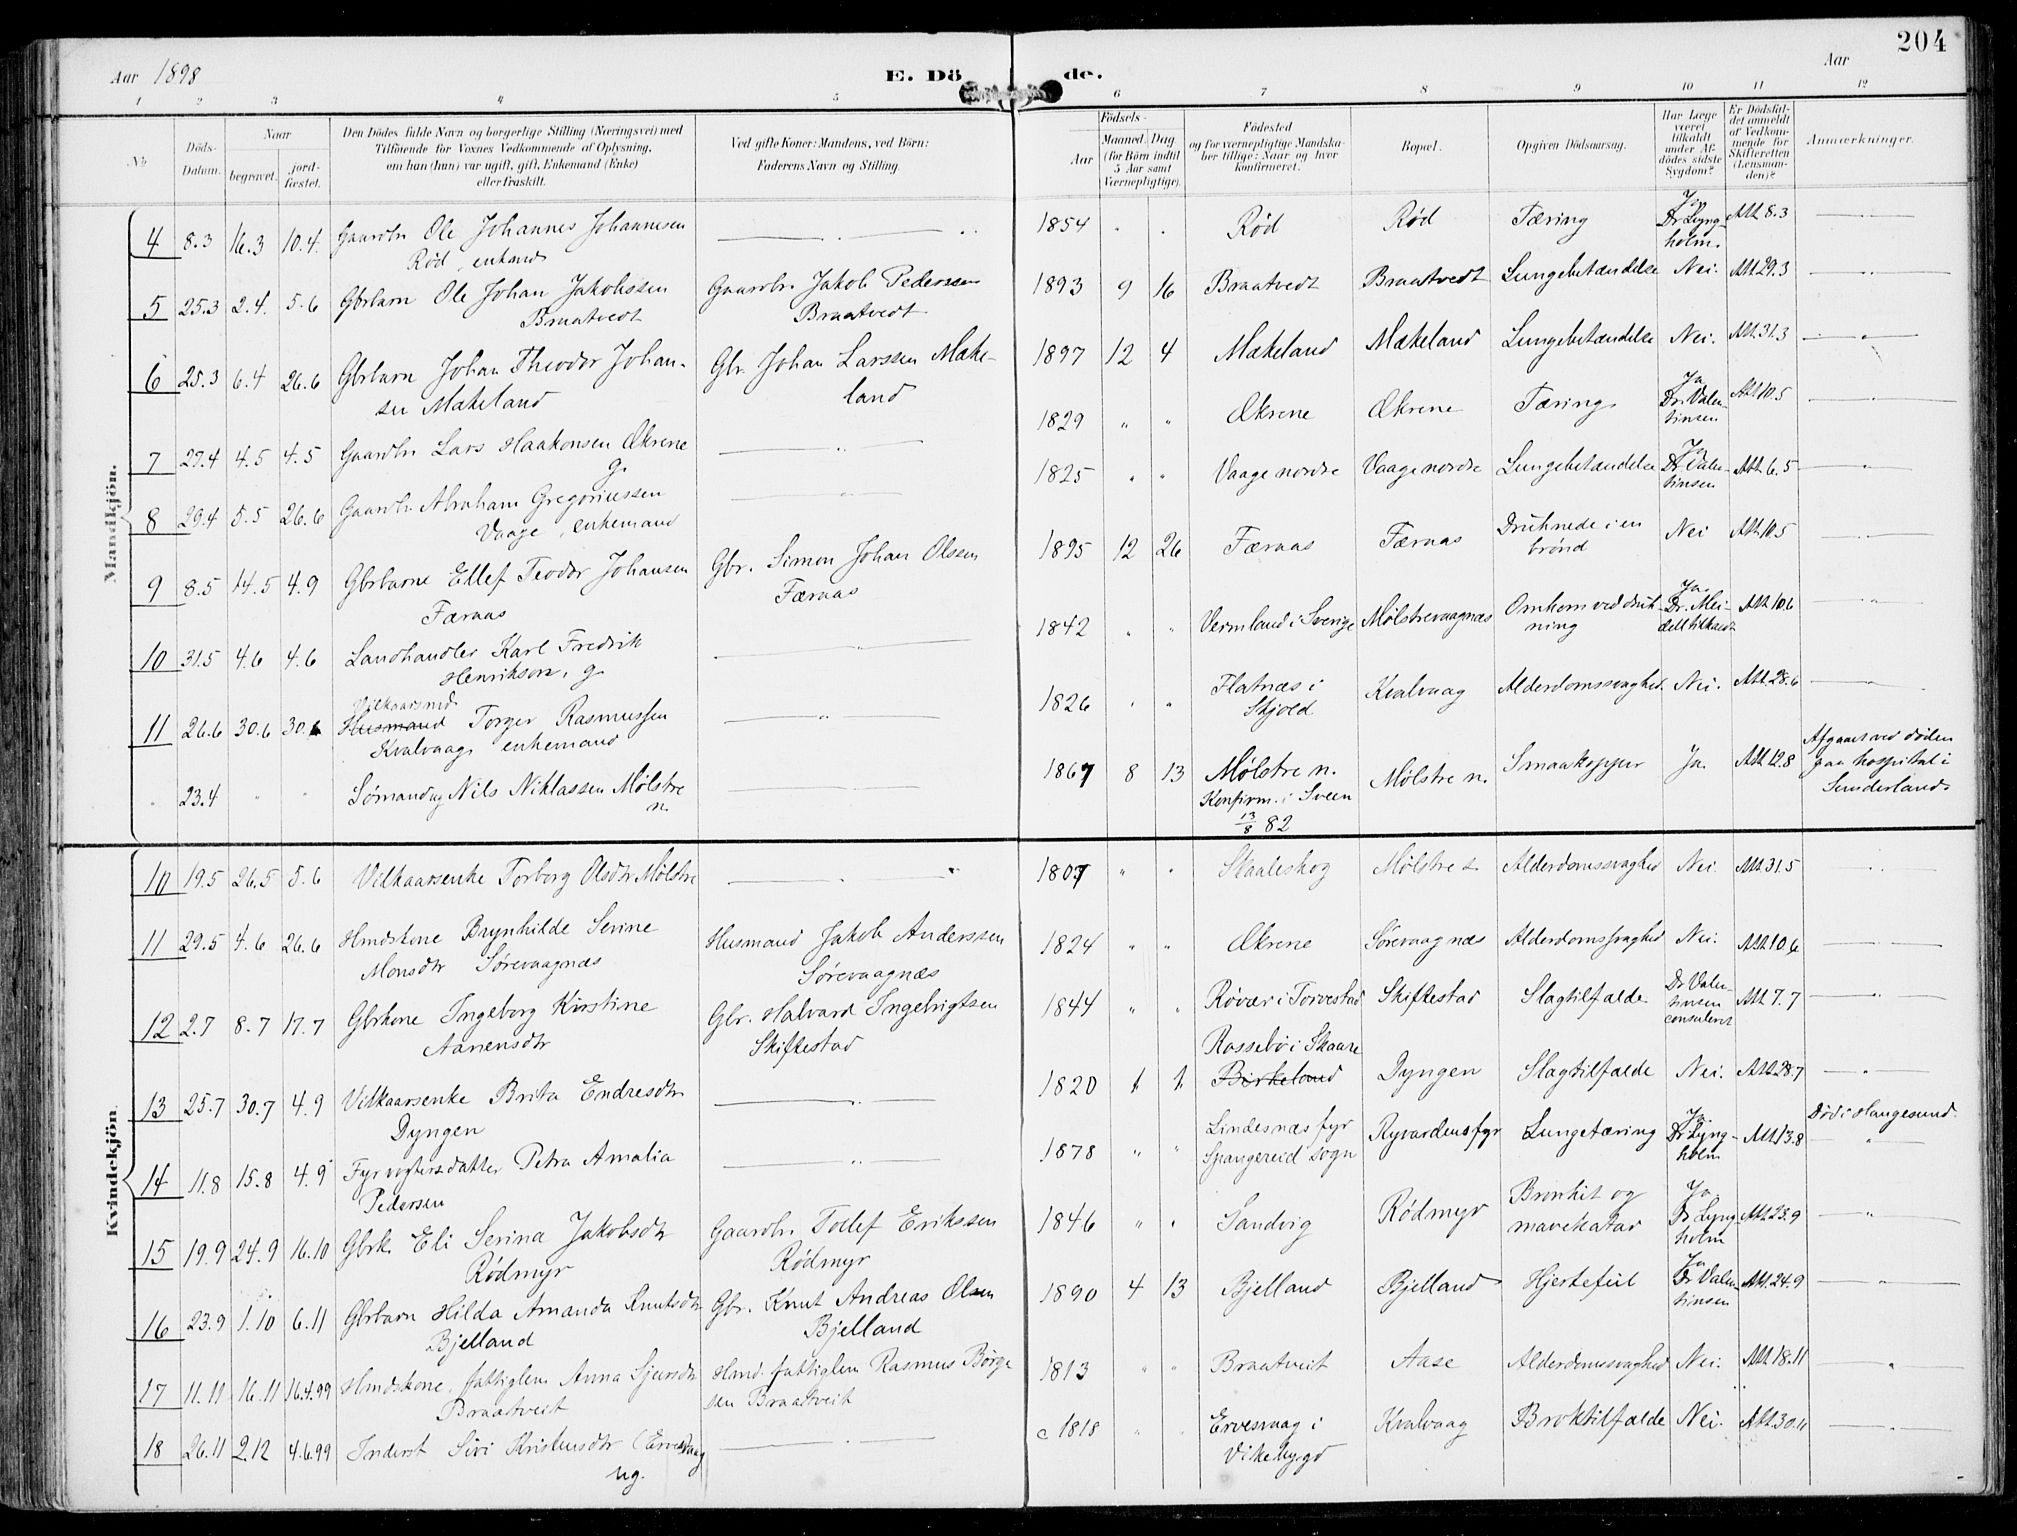 204
Aar 1898
E. Döde.
Aar
1 2 3 4 5 6 7 8 9 10 11 12
No
Döds-Datum.
Naar
begravet.
jord-fæstet.
Den Dödes fulde Navn og borgerlige Stilling (Næringsvei) med
Tilföiende for Voxnes Vedkommende af Oplysning,
om han (hun) var ugift, gift, Enkemand (Enke)
eller fraskilt.
Ved gifte Koner: Mandens, ved Börn:
Faderens Navn og Stilling.
Födsels-
Aar
Maaned. Dag
(for Börn indtil
5 Aar samt
Værnepligtige).
Födested
og for værnepligtige Mandska-
ber tillige: Naar og hvor
Konfirmeret.
Bopæl.
Opgiven Dödsaarsag.
Har Læge
været
tilkaldt
under Af-
dödes sidste
Sygdom?
Er Dödsfal-
det anmeldt
af Vedkom-
mende for
Skifteretten
(Lensman-
den)?
Anmærkninger.
Mandkjön.
4 8.3 16.3 10.4. Gaardbr Ole Johannes Johannesen
Rød, enkemd
1854 Rød Rød Tæring Ja Dr Lyngholm. Att 8.3
5 25.3 2.4. 5.6 Gbrbarn Ole Johan Jakobssen
Braatvedt
Gaardbr. Jakob Pederssen
Braatvedt
1893 9 16 Braatvedt Braatvedt Lungebetændelse Nei. Att. 29.3
6 25.3 6.4 26.6 Gbrbarn Johan Theodor Johan-
sen Mækeland
Gbr. Johan Larssen Mæke-
land
1897 12 4 Mækeland Mækeland Lungebetændelse Nei. Att. 31.3
7 27.4 4.5 4.5 Gaardbr Lars Haakonsen Økrene
g.
1829 " " Økrene Økrene Tæring Ja Dr. Valentinsen Att 10.5
8 29.4 5.5 26.6 Gaardbr. Abraham Gregoriussen
Vaage, enkemand
1825 " " Vaage nordre Vaage nordre Lungebetændelse Ja Dr Valentinsen Att. 6.5
9 8.5 14.5 4.9 Gbrbarne Ellef Teodor Johansen
Færaas
Gbr. Simon Johan Olssen
Færaas
1895 12 26 Færaas Færaas Druknede i en brønd Nei Att. 10.5
10 31.5 4.6 4.6 Landhandler Karl Fredrik
Henrikson, g
1842 " " Vermland i Sverige Mølstrevaagnæs Omkom ved drukning Ja. Dr. Meidell tilkaldt Att 10.6
11 26.6 30.6 30.6 Vilkaarsmd. Husmand Torger Rasmussen
Kvalvaag enkemand
1826 " " Flatnæs i Skjold Kvalvaag Alderdomssvaghed. Nei. Att. 28.6
" 23.4 " " Sømand ug Nils Niklassen Mølstre
n.
1867 8 13 Mølstre n.
Konfirm. i Sveen
13/8 82
Mølstre n. Smaakopper Ja. Att 12.8 Afgaaet ved døden
paa hospital i
Sunderland
Kvindekjön.
10 19.5 26.5 5.6 Vilkaarsenke Torborg Olsdtr Mølstre
1807 " " Skaaleskog Mølstre s Alderdomssvaghed Nei. Att. 31.5
11 29.5 4.6 26.6 Hmdskone Brynhilde Serine
Monsdtr Sørevaagnæs
Husmand Jakob Anderssen
Sørevaagnæs
1824 " " Økrene Sørevaagnæs Alderdomssvaghed Nei. Att. 10.6
12 2.7 8.7 17.7 Gbrkone Ingeborg Kirstine
Aanensdtr
Gbr. Halvard Ingebrigtsen
Skiftestad
1844 " " Røvær i Torvestad Skiftestad Slagtilfælde Dr Valentinsen consuleret Att 7.7
13 25.7 30.7 4.9 Vilkaarsenke Brita Endresdtr
Dyngen
1820 Rossebø i Skaare
Birkeland
Dyngen Slagtilfælde Nei. Att. 28.7
14 11.8 15.8 4.9 Fyrvogtersdatter Petra Amalia
Pedersen
1878 " " Lindesnæs fyr
Spangereid sogn
Ryvardens fyr Lungetæring Ja. Dr Lyngholm Att. 13.8 Död i Haugesund.
15 19.9 24.9 16.10 Gbrk. Eli Serina Jakobsdtr
Rødmyr
Gaardbr. Tollef Erikssen
Rødmyr
1846 " " Sandvig Rødmyr Bronkit og
mavekatar
Ja Dr Lyngholm Att. 23.9
16 23.9 1.10 6.11 Gbrbarn Hilda Amanda Knutsdtr
Bjelland
Gbr. Knut Andreas Olsen
Bjelland
1890 4 13 Bjelland Bjelland Hjertefeil Ja Dr Valentinsen Att. 24.9
17 11.11 16.11 16.4.99 Hmdskone, fattiglem Anna Sjursdtr
Braatveit
Hmd. fattiglem Rasmus Børge
sen Braatveit
1813 " " Braatveit Aase Alderdomssvaghed Nei. Att. 18.11
18 26.11 2.12 4.6.99 Inderst Siri Kristensdtr (Ervesvaag
ug.
c 1818 " " Ervesvaag i
Vikebygd
Kvalvaag Broktilfælde Nei. Att. 30.11